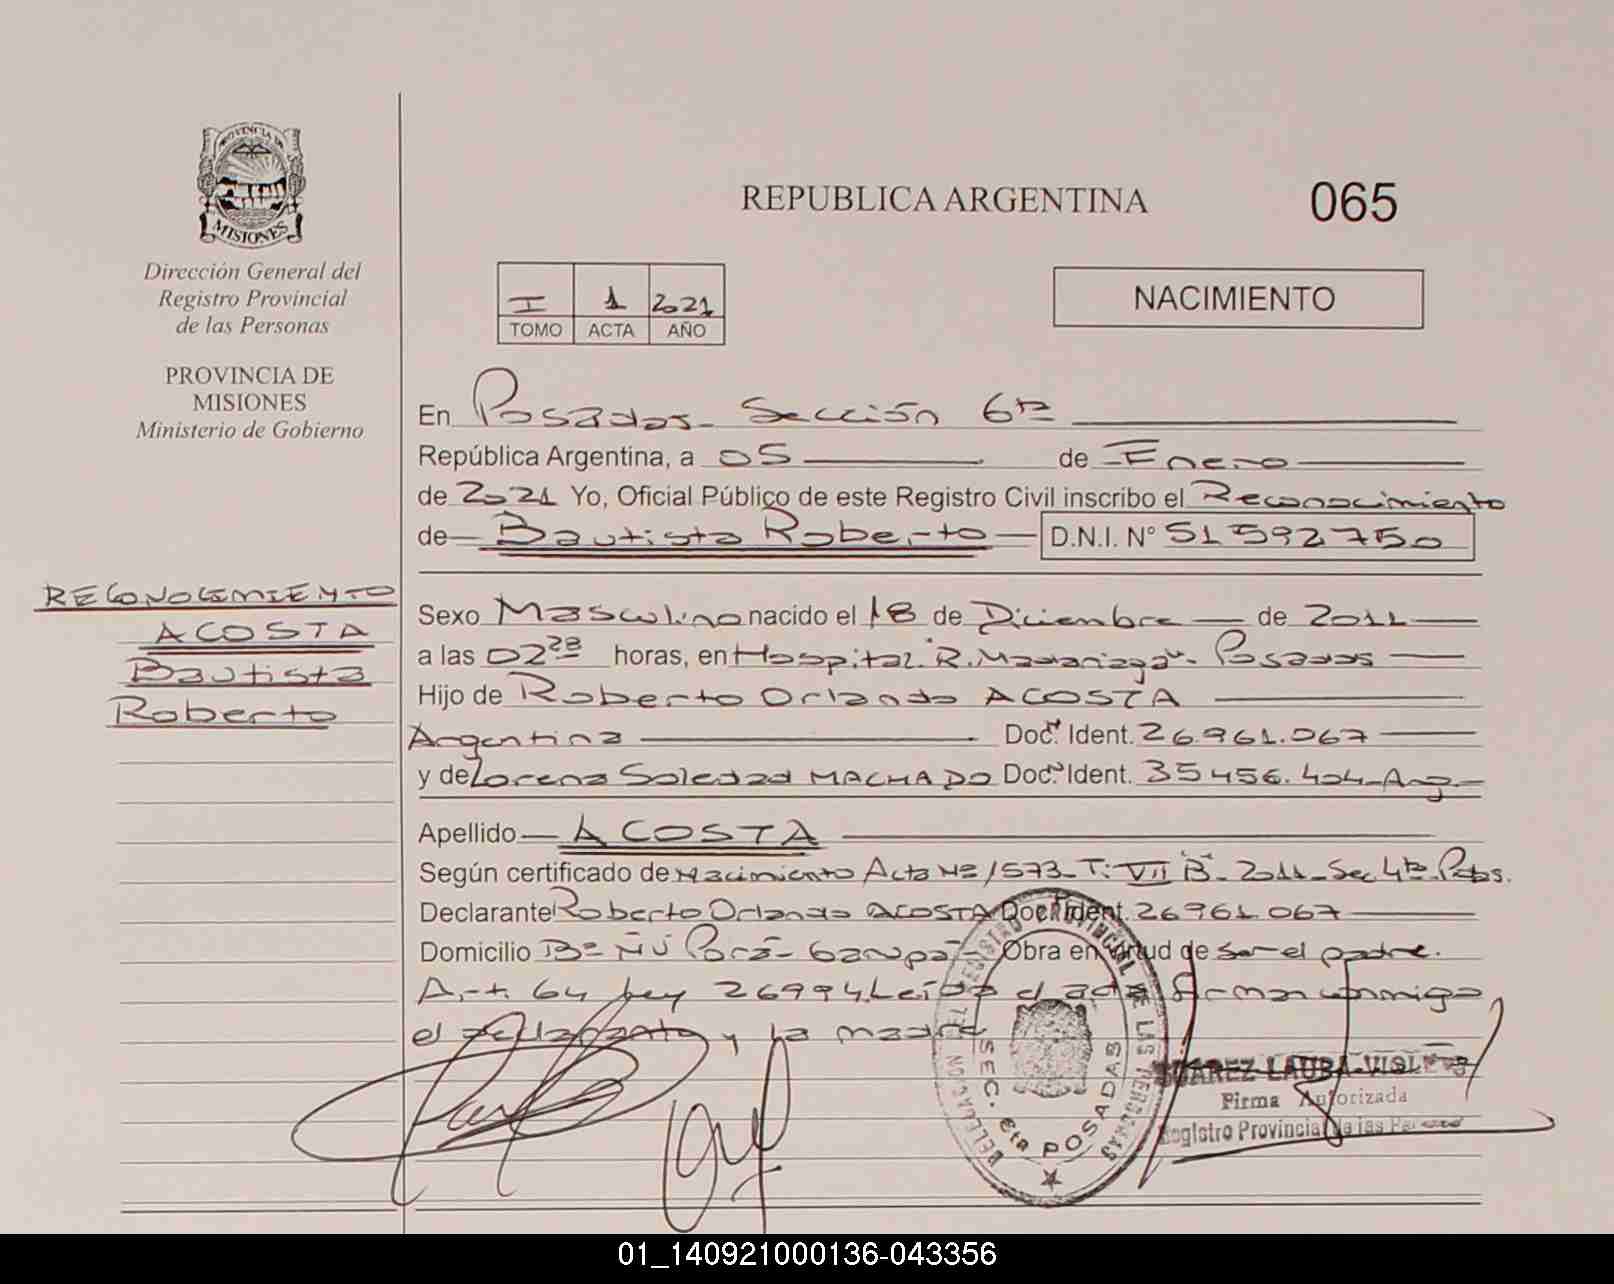 PROVINCIA DE
MISIONES
Dirección General del
Registro Provincial
de las Personas
PROVINCIA DE
MISIONES
Ministerio de Gobierno
RECONOCIMIENTO
ACOSTA
Bautista
Roberto
REPUBLICA ARGENTINA
065
I 1 2021
TOMO ACTA AÑO
NACIMIENTO
En Posadas Sección 6ta
República Argentina, a 05 de Enero
de 2021 Yo, Oficial Público de este Registro Civil inscribo el Reconocimiento
de Bautista Roberto D.N.I. N° 51592750
Sexo Masculino nacido el 18 de Diciembre de 2011
a las 02 28 horas, en Hospital "R. Madariaga" Posadas
Hijo de Roberto Orlando ACOSTA
Argentina Doc. Ident. 26.961.067
y de Lorena Soledad MACHADO Doc. Ident. 35456.404 Arg.
Apellido ACOSTA
Según certificado de Nacimiento Acta Nº 1573 T: VII "B" 2011 Sec 4ta Pdas.
Declarante Roberto Orlando ACOSTA Doc. Ident. 26961.067
Domicilio Bº Ñú Porá - Garupá - Obra en virtud de ser el padre.
Art. 64 Ley 26994. Leída el acta firman conmigo
el declarante y la madre
DELEGAC NOS DEL REGISTRO PROVINCIAL DE LAS PERSONAS
SEC. 6ta POSADAS
SUAREZ LAURA VIOLETA
Firma Autorizada
Registro Provincial de las Personas
01_140921000136-043356